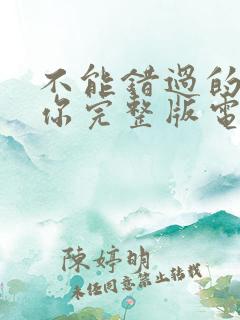 不能錯過的
你完整版電
陳婷明
未經同意禁止轉載